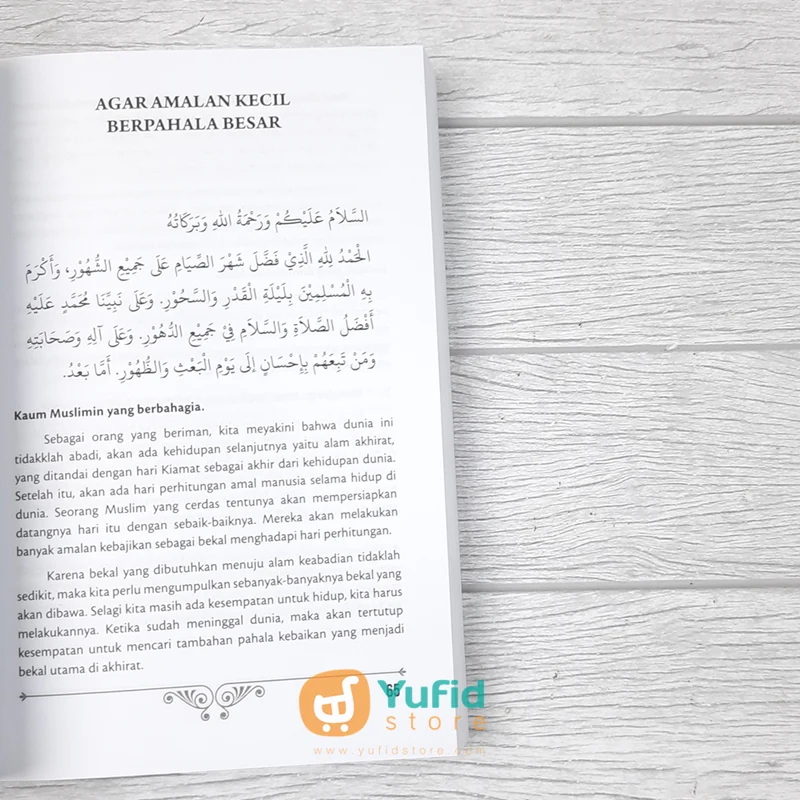 AGAR AMALAN KECIL
BERPAHALA BESAR
السَّلاَمُ عَلَيْكُمْ وَرَحْمَةُ اللهِ وَبَرَكَاتُهُ
الْحَمْدُ لِلهِ الَّذِيْ فَضَّلَ شَهْرَ الصِّيَامِ عَلَى جَمِيْعِ الشُّهُوْرِ، وَأَكْرَمَ
بِهِ الْمُسْلِمِيْنَ بِلَيْلَةِ الْقَدْرِ وَالسَّحُوْرِ. وَعَلَى نَبِيِّنَا مُحَمَّدٍ عَلَيْهِ
أَفْضَلُ الصَّلاَةِ وَالسَّلاَمِ فِيْ جَمِيْعِ الدُّهُوْرِ. وَعَلَى آلِهِ وَصَحَابَتِهِ
وَمَنْ تَبِعَهُمْ بِإِحْسَانٍ إِلَى يَوْمِ الْبَعْثِ وَالظُّهُوْرِ. أَمَّا بَعْدُ.
Kaum Muslimin yang berbahagia.
Sebagai orang yang beriman, kita meyakini bahwa dunia ini
tidakklah abadi, akan ada kehidupan selanjutnya yaitu alam akhirat,
yang ditandai dengan hari Kiamat sebagai akhir dari kehidupan dunia.
Setelah itu, akan ada hari perhitungan amal manusia selama hidup di
dunia. Seorang Muslim yang cerdas tentunya akan mempersiapkan
datangnya hari itu dengan sebaik-baiknya. Mereka akan melakukan
banyak amalan kebajikan sebagai bekal menghadapi hari perhitungan.
Karena bekal yang dibutuhkan menuju alam keabadian tidaklah
sedikit, maka kita perlu mengumpulkan sebanyak-banyaknya bekal yang
akan dibawa. Selagi kita masih ada kesempatan untuk hidup, kita harus
melakukannya. Ketika sudah meninggal dunia, maka akan tertutup
kesempatan untuk mencari tambahan pahala kebaikan yang menjadi
bekal utama di akhirat.
65
Yufid
store
www.yufidstore.com